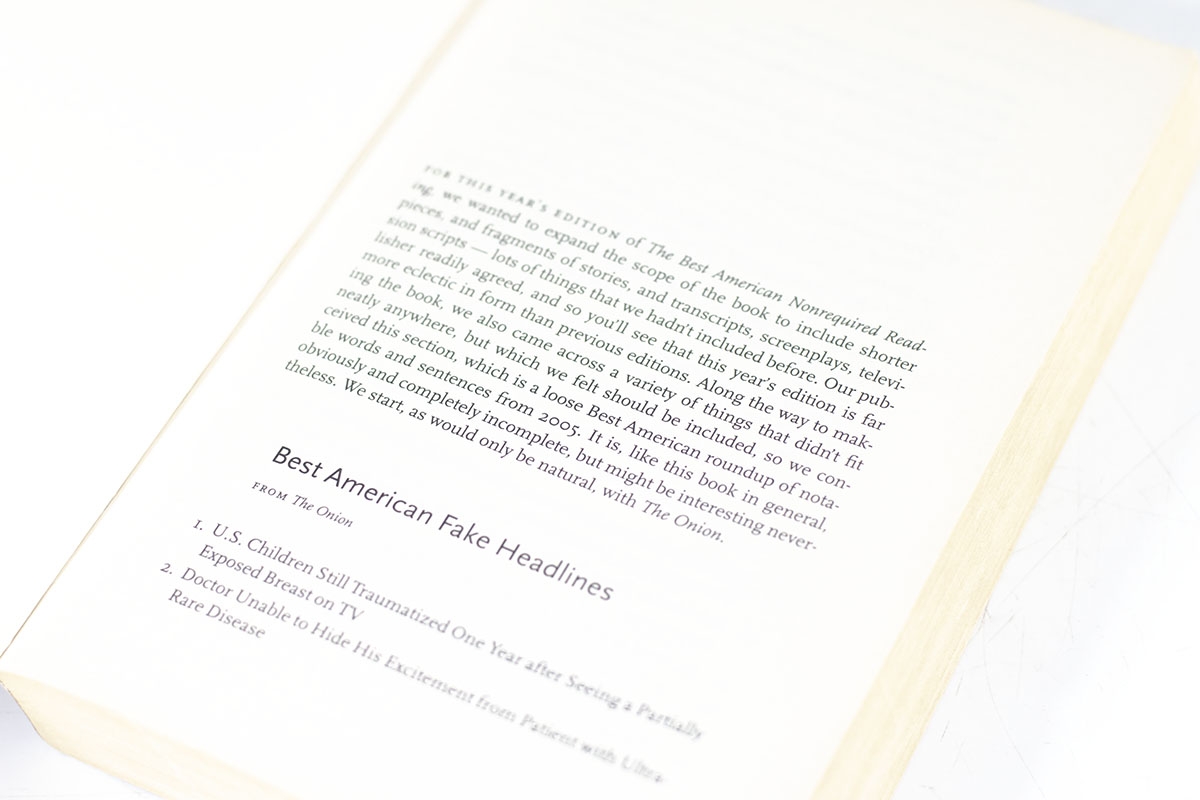 FOR THIS YEAR'S EDITION of The Best American Nonrequired Read-
ing, we wanted to expand the scope of the book to include shorter
pieces, and fragments of stories, and transcripts, screenplays, televi-
sion scripts — lots of things that we hadn't included before. Our pub-
lisher readily agreed, and so you'll see that this year's edition is far
more eclectic in form than previous editions. Along the way to mak-
ing the book, we also came across a variety of things that didn't fit
neatly anywhere, but which we felt should be included, so we con-
ceived this section, which is a loose Best American roundup of nota-
ble words and sentences from 2005. It is, like this book in general,
obviously and completely incomplete, but might be interesting never-
theless. We start, as would only be natural, with The Onion.
Best American Fake Headlines
FROM The Onion
1. U.S. Children Still Traumatized One Year after Seeing a Partially
Exposed Breast on TV
2. Doctor Unable to Hide His Excitement from Patient with Ultra
Rare Disease